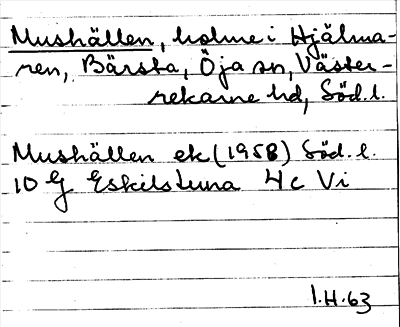 Mushällen, holme i Hjälma-
ren, Bärsta, Öja sn, Väster-
rekarne hd, Söd. l.
Mushällen ek (1958) Söd. l.
10 G Eskilstuna 4 c Vi
I.H. 63